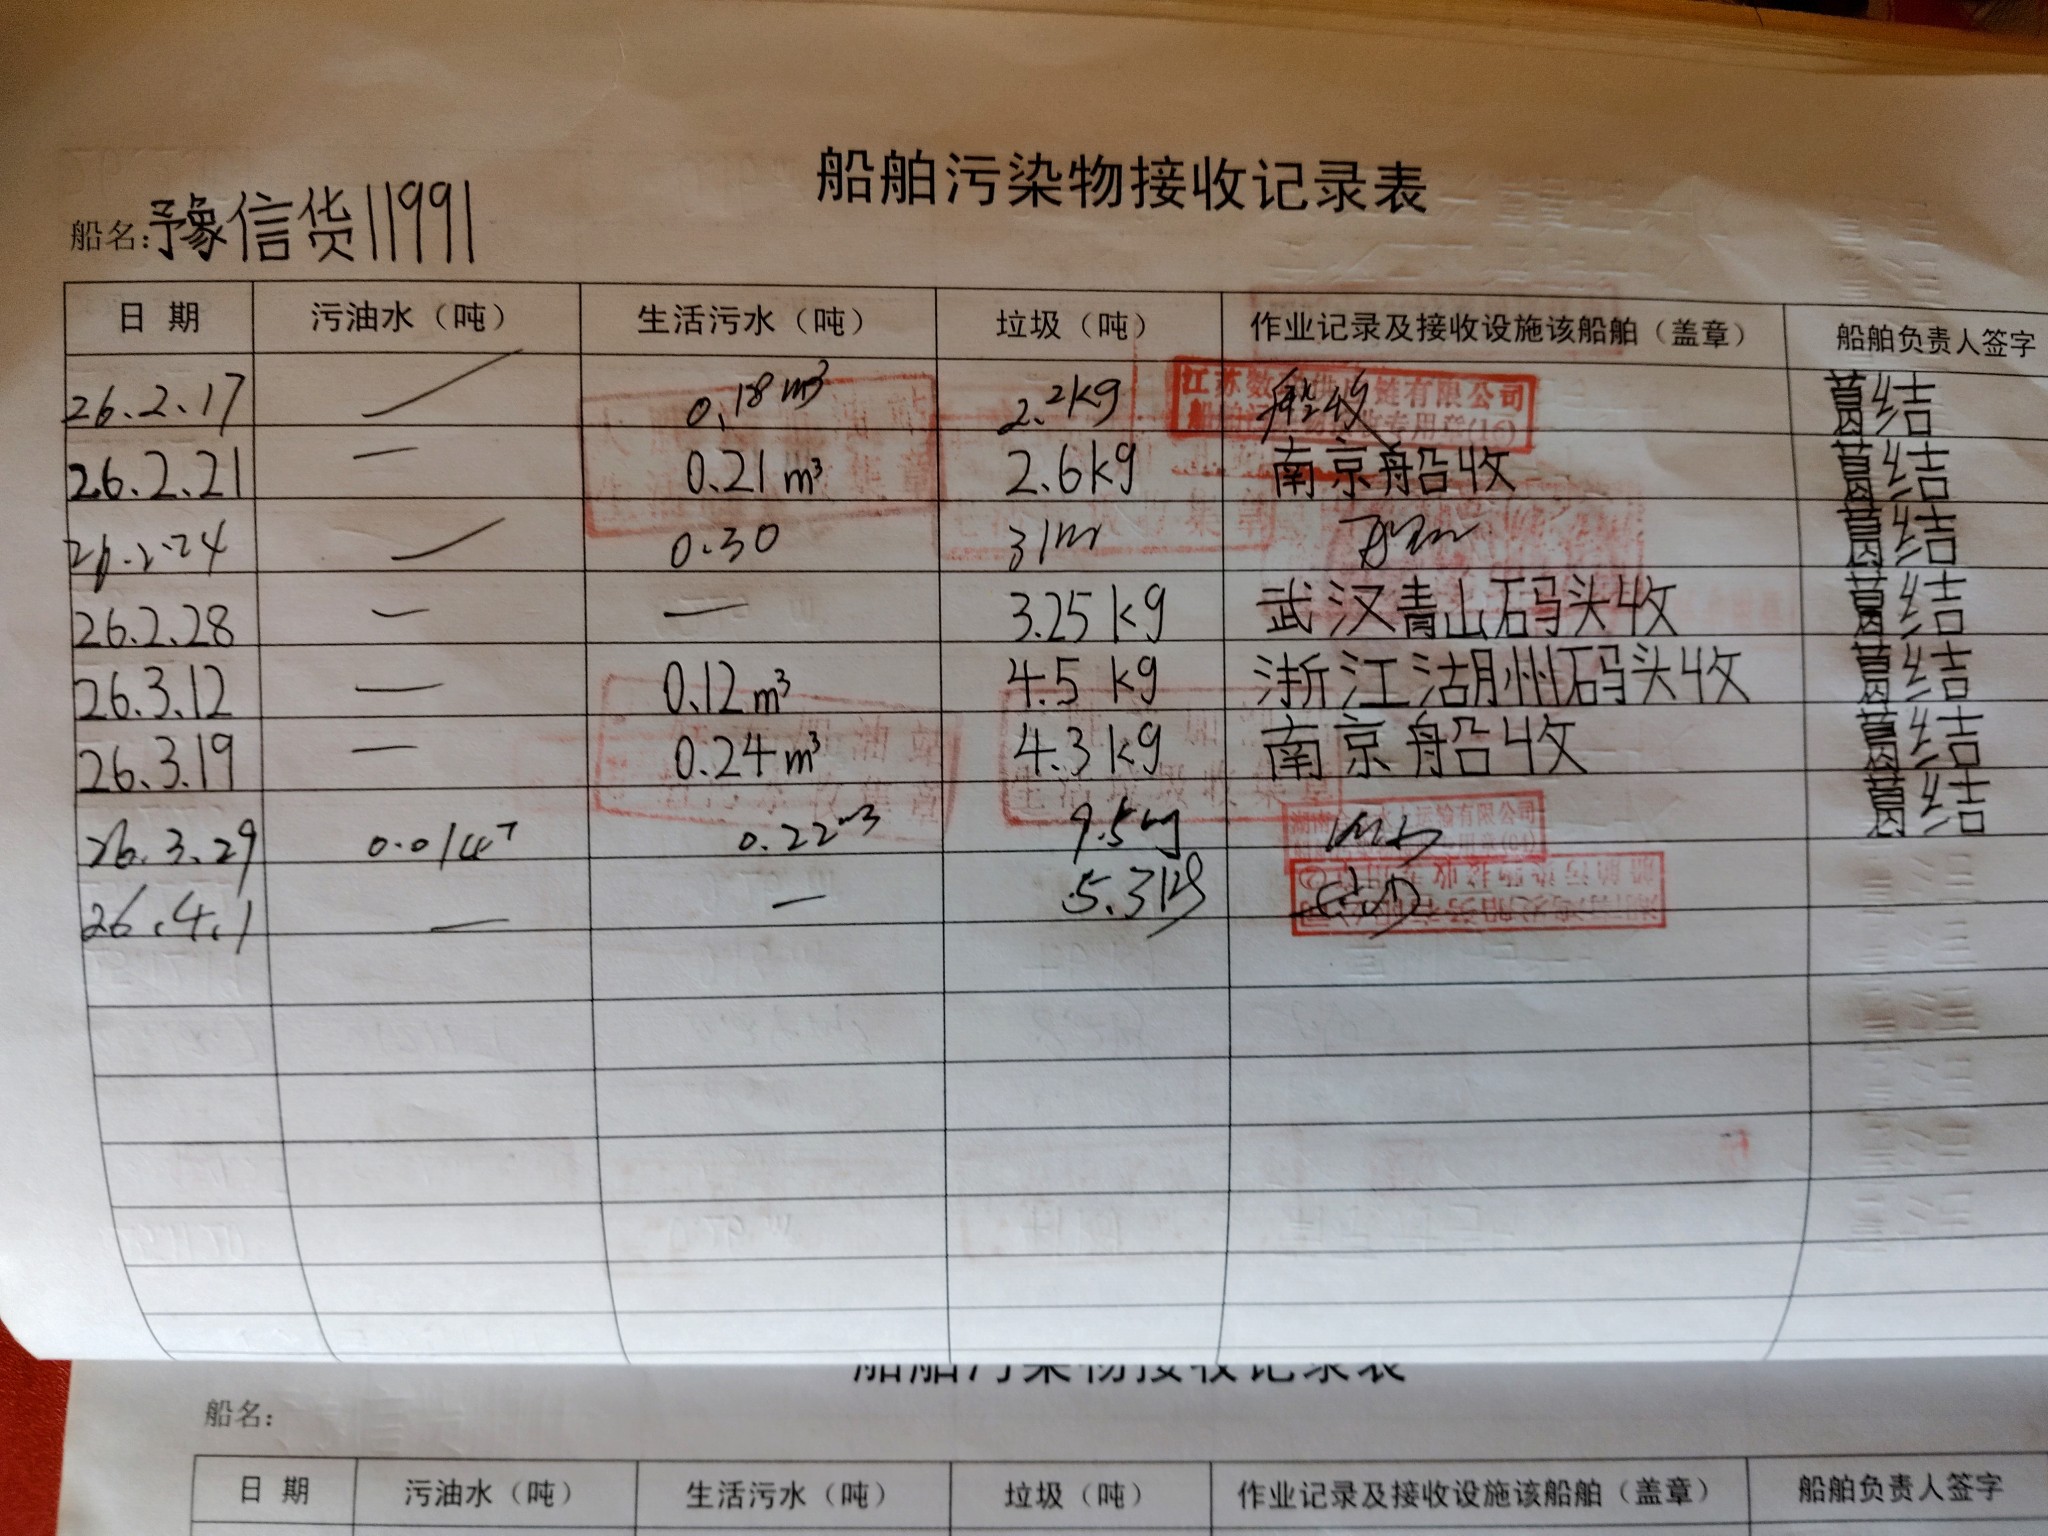 船舶污染物接收记录表
船名:豫信货11991
日 期 污油水（吨） 生活污水（吨） 垃圾（吨） 作业记录及接收设施该船舶（盖章） 船舶负责人签字
26.2.17 0.18m³ 2.2kg 船收 结
江苏数 供应链有限公司
26.2.21 — 0.21m³ 2.6kg 南京船收 结
26.2.24 0.30 结
26.2.28 — — 3.25kg 武汉青山码头收 结
26.3.12 — 0.12m³ 4.5kg 浙江湖州码头收 结
26.3.19 — 0.24m³ 4.3kg 南京船收 结
26.3.29 0.014T 0.22m³ 9.5kg 结
26.4.1 — — 5.3kg
船舶污染物接收记录表
船名:
日 期 污油水（吨） 生活污水（吨） 垃圾（吨） 作业记录及接收设施该船舶（盖章） 船舶负责人签字